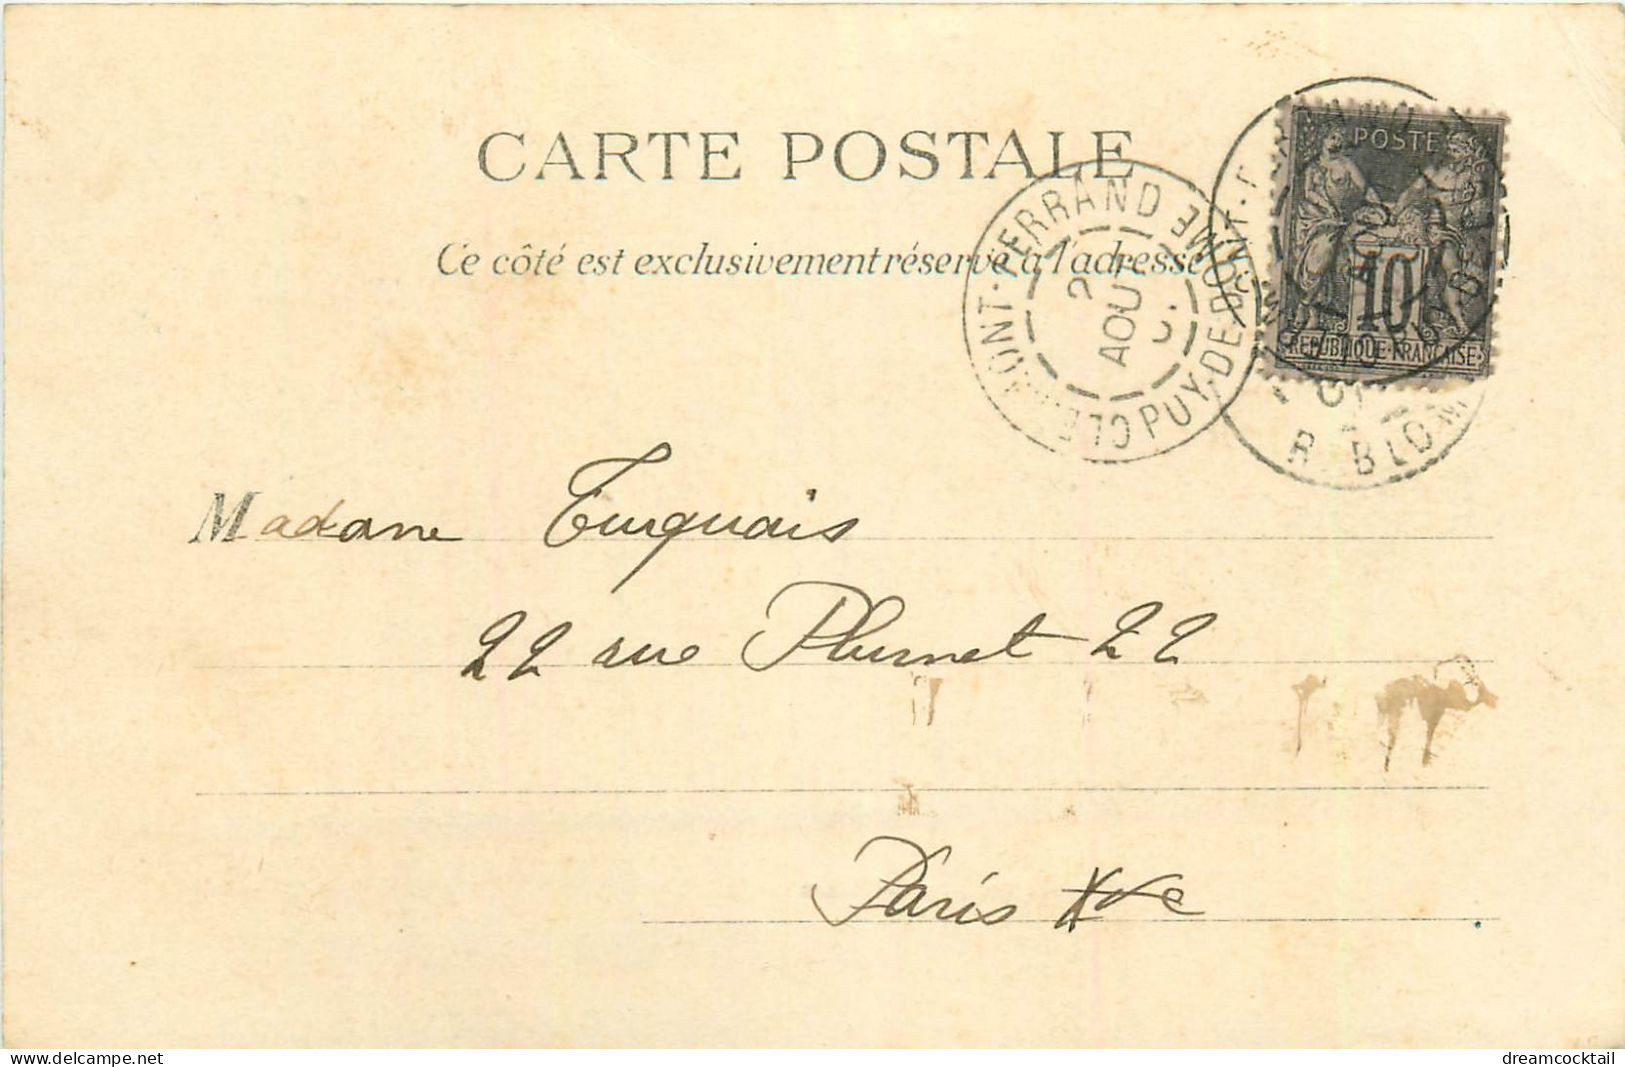 CARTE POSTALE
Ce côté est exclusivement réservé à l'adresse
POSTE
10
REPUBLIQUE · FRANÇAISE
CLERMONT-FERRAND
PUY-DE-DOME
AOUT
R. BLOM
Madame Turquais
22 rue Plumet 22
Paris XVe
www.delcampe.net
dreamcocktail